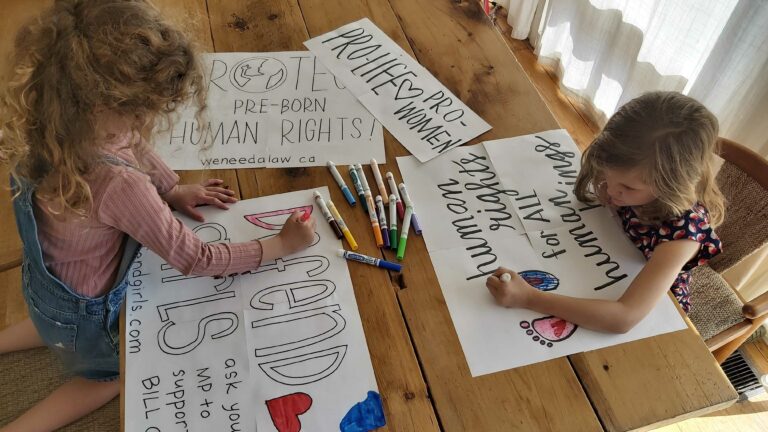 ROTEC
PRE-BORN
HUMAN RIGHTS!
weneedalaw.ca
PRO-LIFE♡PRO-
WOMEN
human
rights
for ALL
human
human
ings
Defend
GIRLS
ask your
MP to
support
BILL C
ndgirls.com